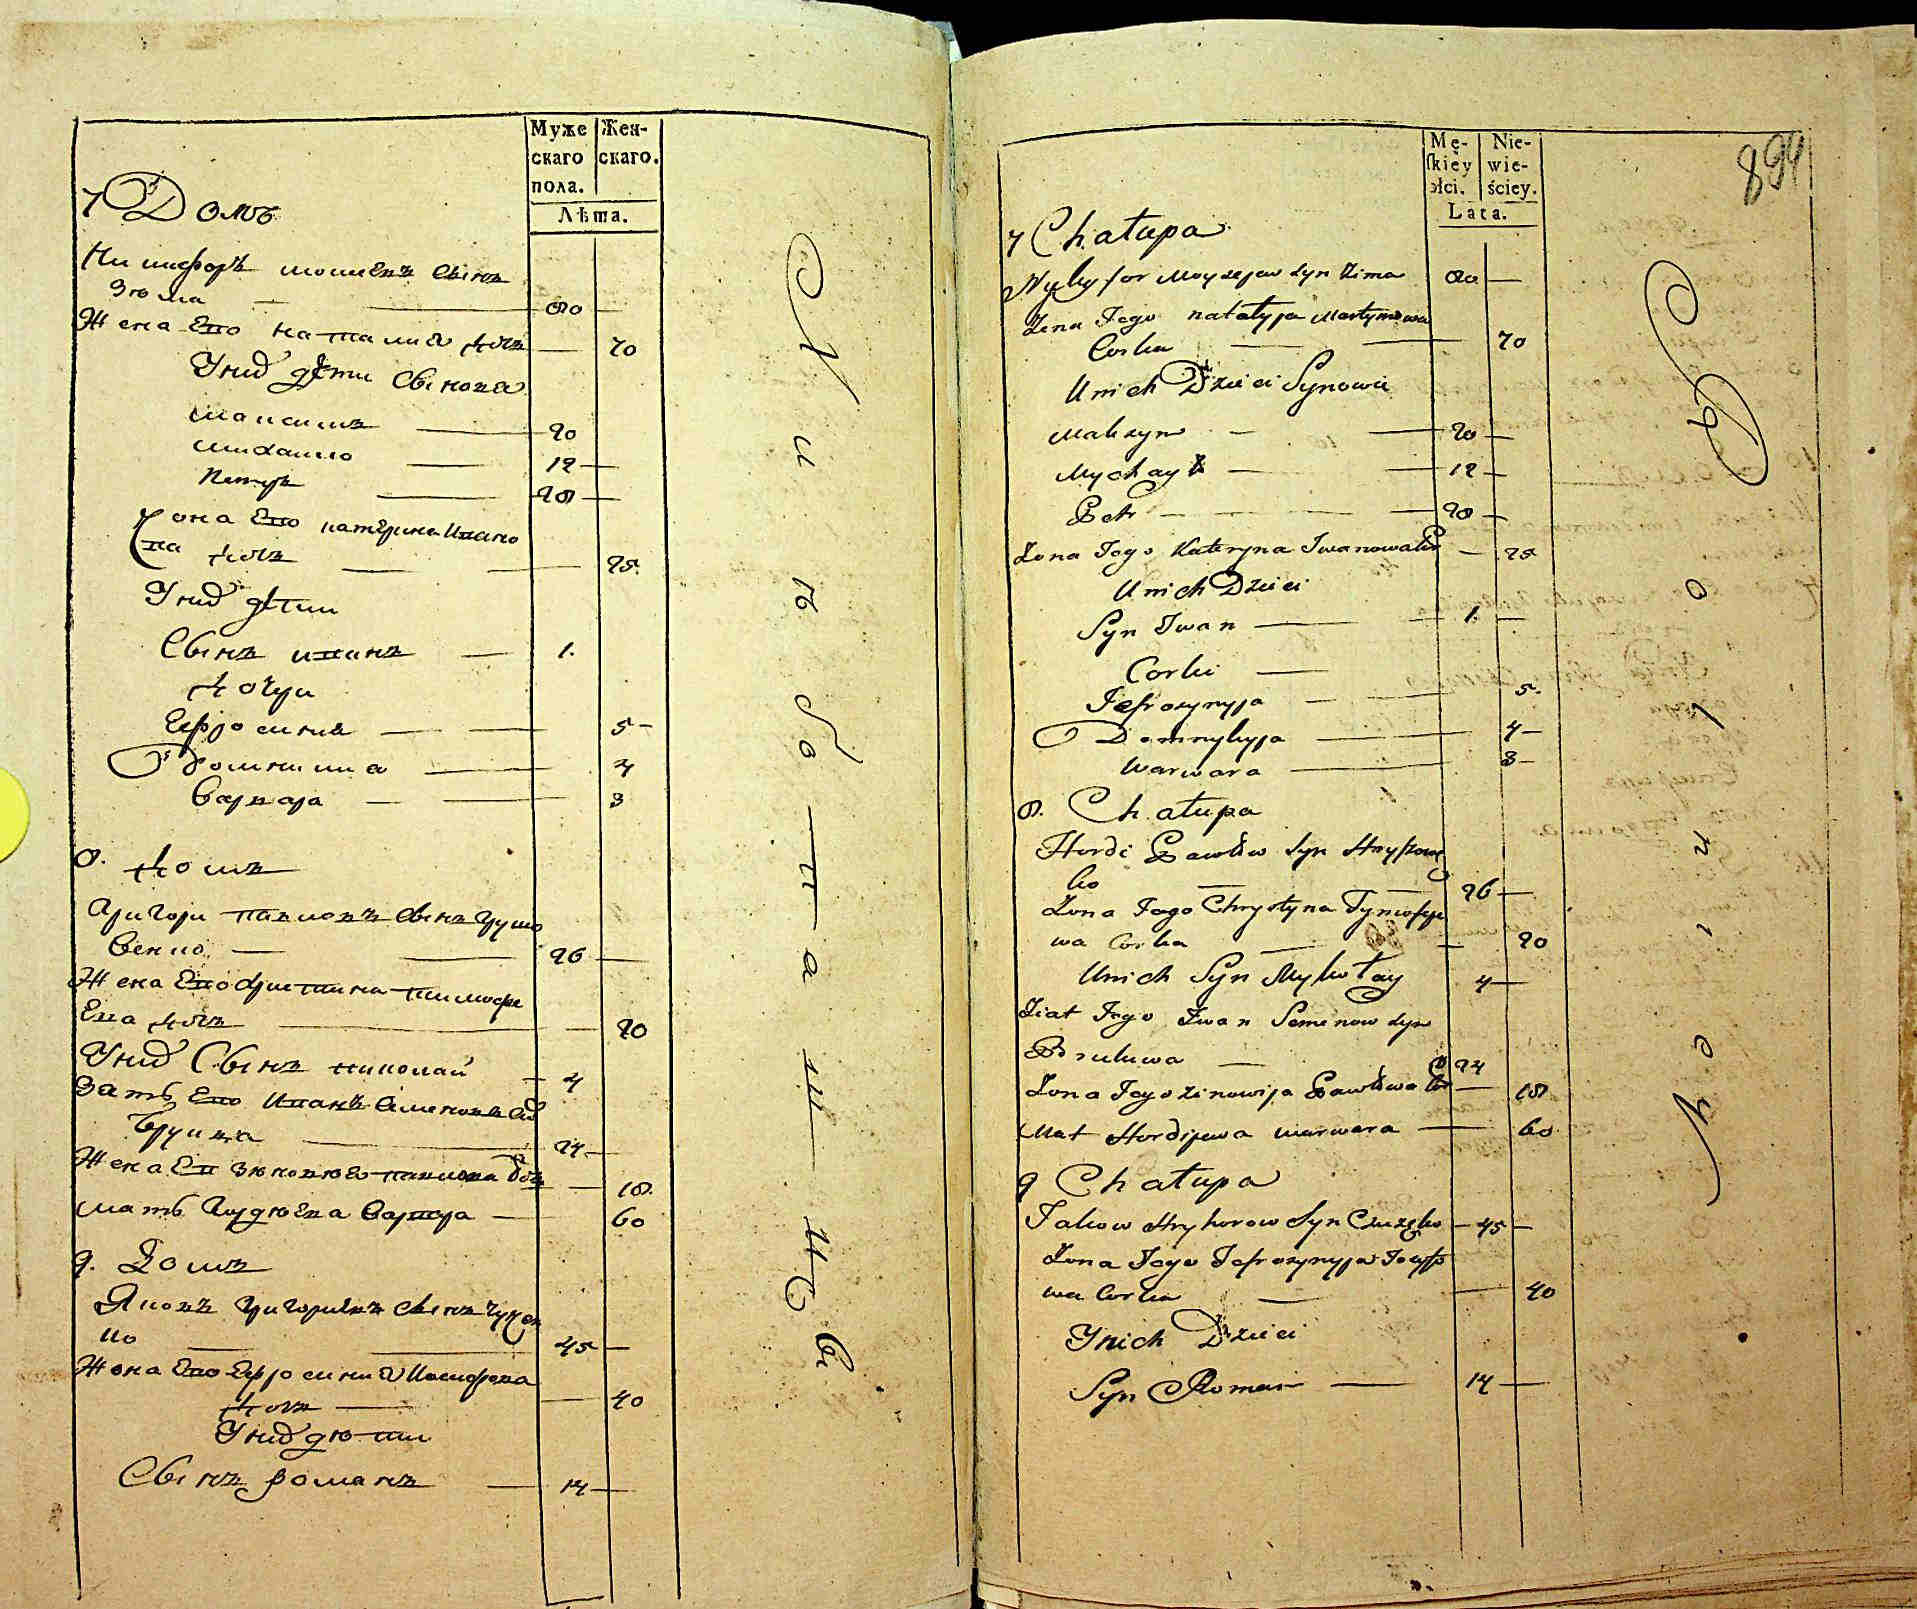 Муже
скаго
пола.
Жен-
скаго.
Лѣта.
7 Домъ
Никифоръ мошеевъ сынъ
Зюма 80
Жена Его наталия дочь 70
Унид дѣти Сынова
Максимъ 20
михаило 12
Петръ 28
Жона Его катерина Ивано
ва дочь 25.
Унид дѣти
Сынъ иванъ 1.
дочри
Ефросиния 5
Домникия 4
Варвара 3
8. домъ
Григори павловъ сынъ Гришо
венко 26
Жена Его христина тимофе
Ева дочь 20
Унид Сынъ николай 4
Зать Его Иванъ Семеновъ
24
Жена Ег зиновия павлова доч 18.
мать Гордюева Варвара 60
9. Домъ
Яковъ Григориевъ сынъ
ко 45
Жона Его Ефросиния Иосифова
дочь 40
Унид дюти
Сынъ романъ 14
Mę-
skiey
płci.
Nie-
wie-
ściey.
Lata.
894
7 Chałupa
Nykyfor Moyzejew syn Zima 80
Zona Jego natalyja Martynowa
Corka 70
Unich Dzieci Synowie
Maksym 20
Mychayło 12
Petr 28
Zona Jego Kateryna Iwanowa Cor 25
Unich Dzieci
Syn Iwan 1.
Corki
Jefrozynyja 5.
Domnykyja 4
Warwara 3
8. Chałupa
Hordi Pawłów Syn Hryszowe
ko 26
Zona Jego Chrystyna Tymofeje
wa Corka 20
Unich Syn Mykołay 4
Ziat Jego Iwan Semenow syn
24
Zona Jego Zinowija Pawłowa Cor 18
Mat Hordijewa Warwara 60
9 Chałupa
Jakow Hryhorow Syn 45
Zona Jego Jefrozynyja Josyfo
wa Corka 40
Ynich Dzieci
Syn Roman 14